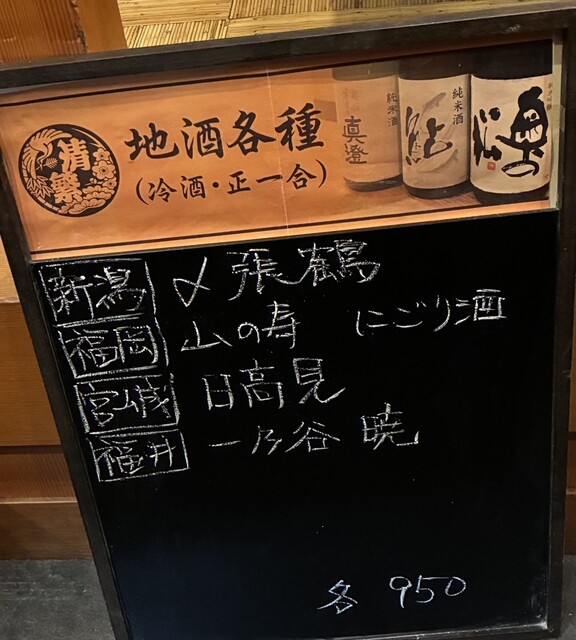 清榮
地酒各種
(冷酒・正一合)
純米酒
真澄
純米酒
鮎
奥の松
新潟 〆張鶴
福岡 山の寿 にごり酒
宮城 日高見
福井 一乃谷 暁
各 950